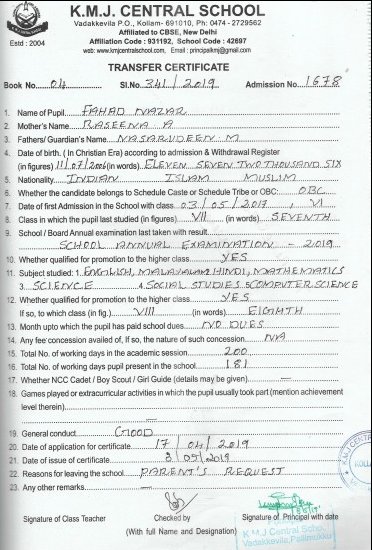 K.M.J. CENTRAL SCHOOL
Vadakkevila P.O., Kollam- 691010, Ph: 0474 - 2729562
Affiliated to CBSE, New Delhi
Affiliation Code : 931192, School Code : 42697
Estd : 2004
web: www.kmjcentralschool.com, Email : principalkmj@gmail.com
TRANSFER CERTIFICATE
Book No. 04 Sl.No. 341/2019 Admission No. 1678
1. Name of Pupil FAHAD NAZAR
2. Mother's Name RASEENA A
3. Fathers/ Guardian's Name NASARUDEEN. M
4. Date of birth. ( In Christian Era) according to admission & Withdrawal Register
(in figures) 11/07/2006 (in words) ELEVEN SEVEN TWO THOUSAND SIX
5. Nationality INDIAN ISLAM MUSLIM
6. Whether the candidate belongs to Schedule Caste or Schedule Tribe or OBC: OBC
7. Date of first Admission in the School with class 03/05/2017, VI
8. Class in which the pupil studied (in figures) VII (in words) SEVENTH
9. School / Board Annual examination last taken with result
SCHOOL ANNUAL EXAMINATION - 2019
10. Whether qualified for promotion to the higher class YES
11. Subject studied : 1. ENGLISH, MALAYALAM HINDI, MATHEMATICS
3. SCIENCE 4. SOCIAL STUDIES 5 COMPUTER SCIENCE
12. Whether qualified for promotion to the higher class YES
If so, to which class (in fig.) VIII (in words) EIGHTH
13. Month upto which the pupil has paid school dues NO DUES
14. Any fee concession availed of, If so, the nature of such concession NA
15. Total No. of working days in the academic session 200
16. Total No. of working days pupil present in the school 181
17. Whether NCC Cadet / Boy Scout / Girl Guide (details may be given) —
18. Games played or extracurricular activities in which the pupil usually took part (mention achievement
level therein) —
19. General conduct GOOD
20. Date of application for certificate 17/04/2019
21. Date of issue of certificate 8/05/2019
22. Reasons for leaving the school PARENT'S REQUEST
23. Any other remarks —
Signature of Class Teacher Checked by Signature of Principal with date
(With full Name and Designation)
K.M.J Central School
Vadakkevila, Pallimukku